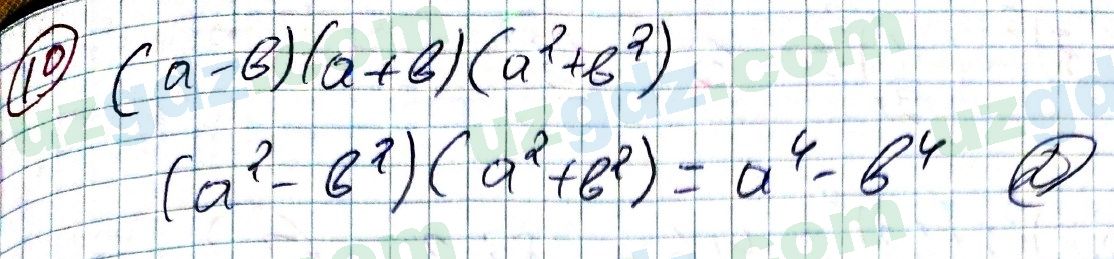 10 (a-b)(a+b)(a²+b²)
(a²-b²)(a²+b²)=a⁴-b⁴
uzgdz.com
uzgdz.com
uzgdz.com